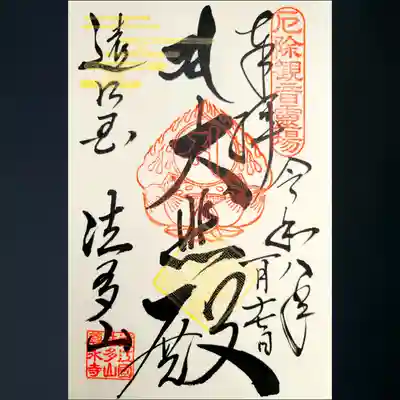 厄除観音靈場
奉拝
令和八年
大悲殿
遠江国
法多山
遠江國
法多山
尊永寺